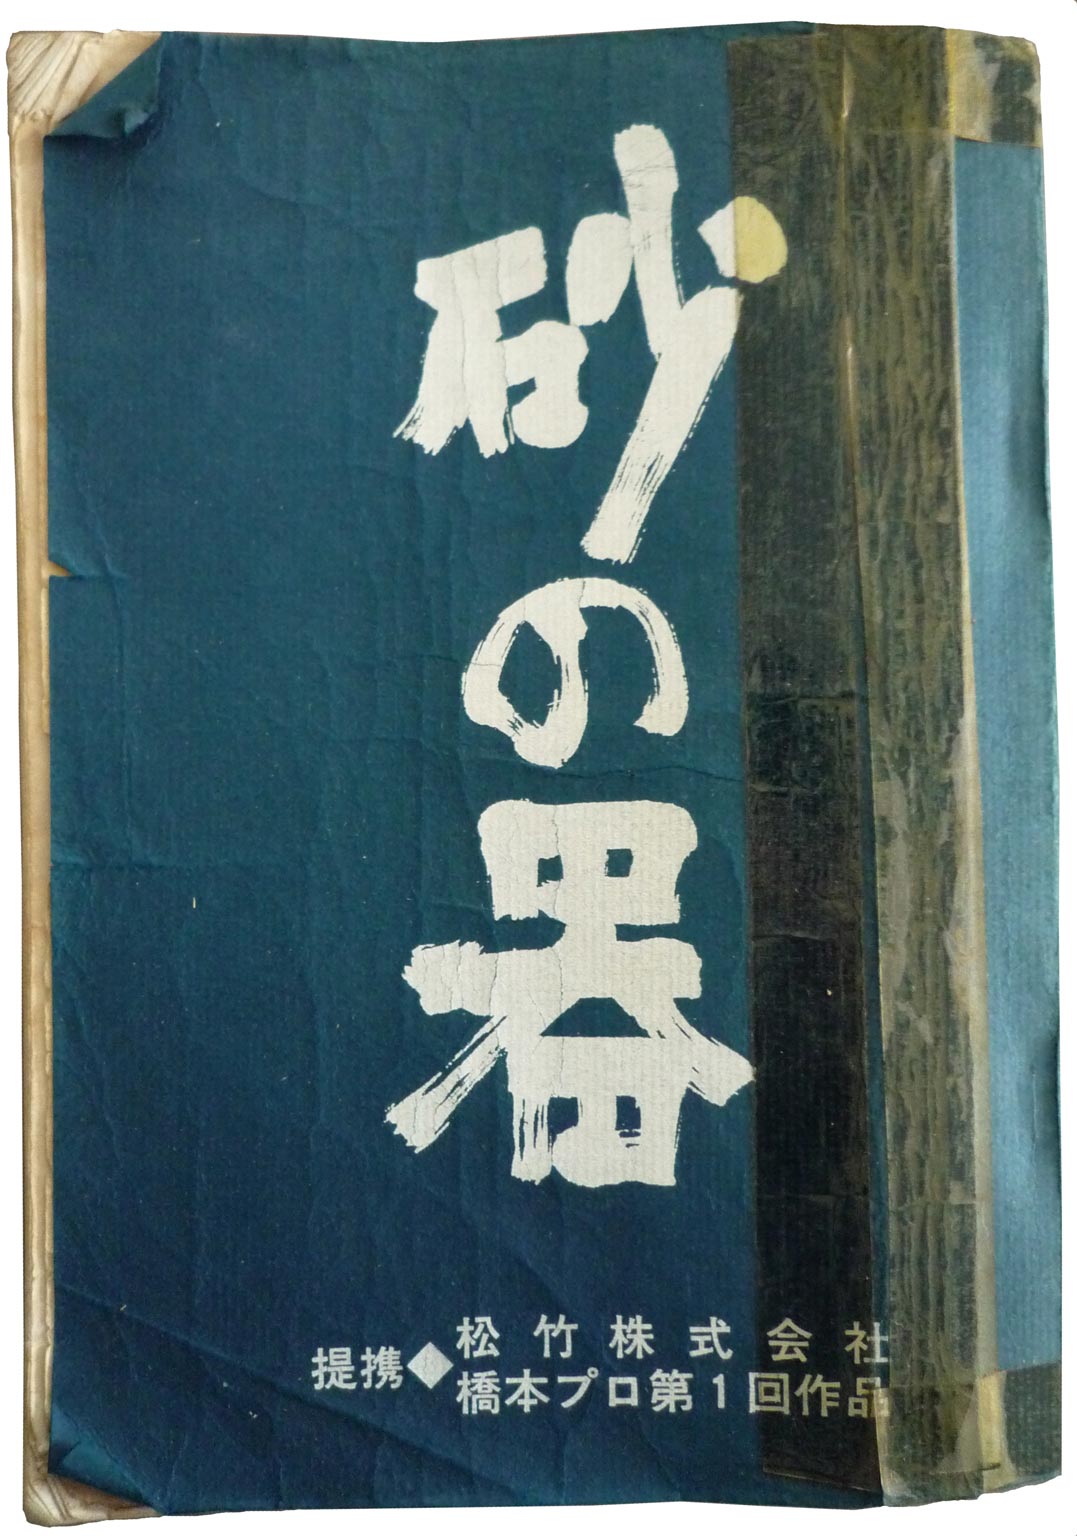 砂の器
提携◆松竹株式会社
橋本プロ第1回作品